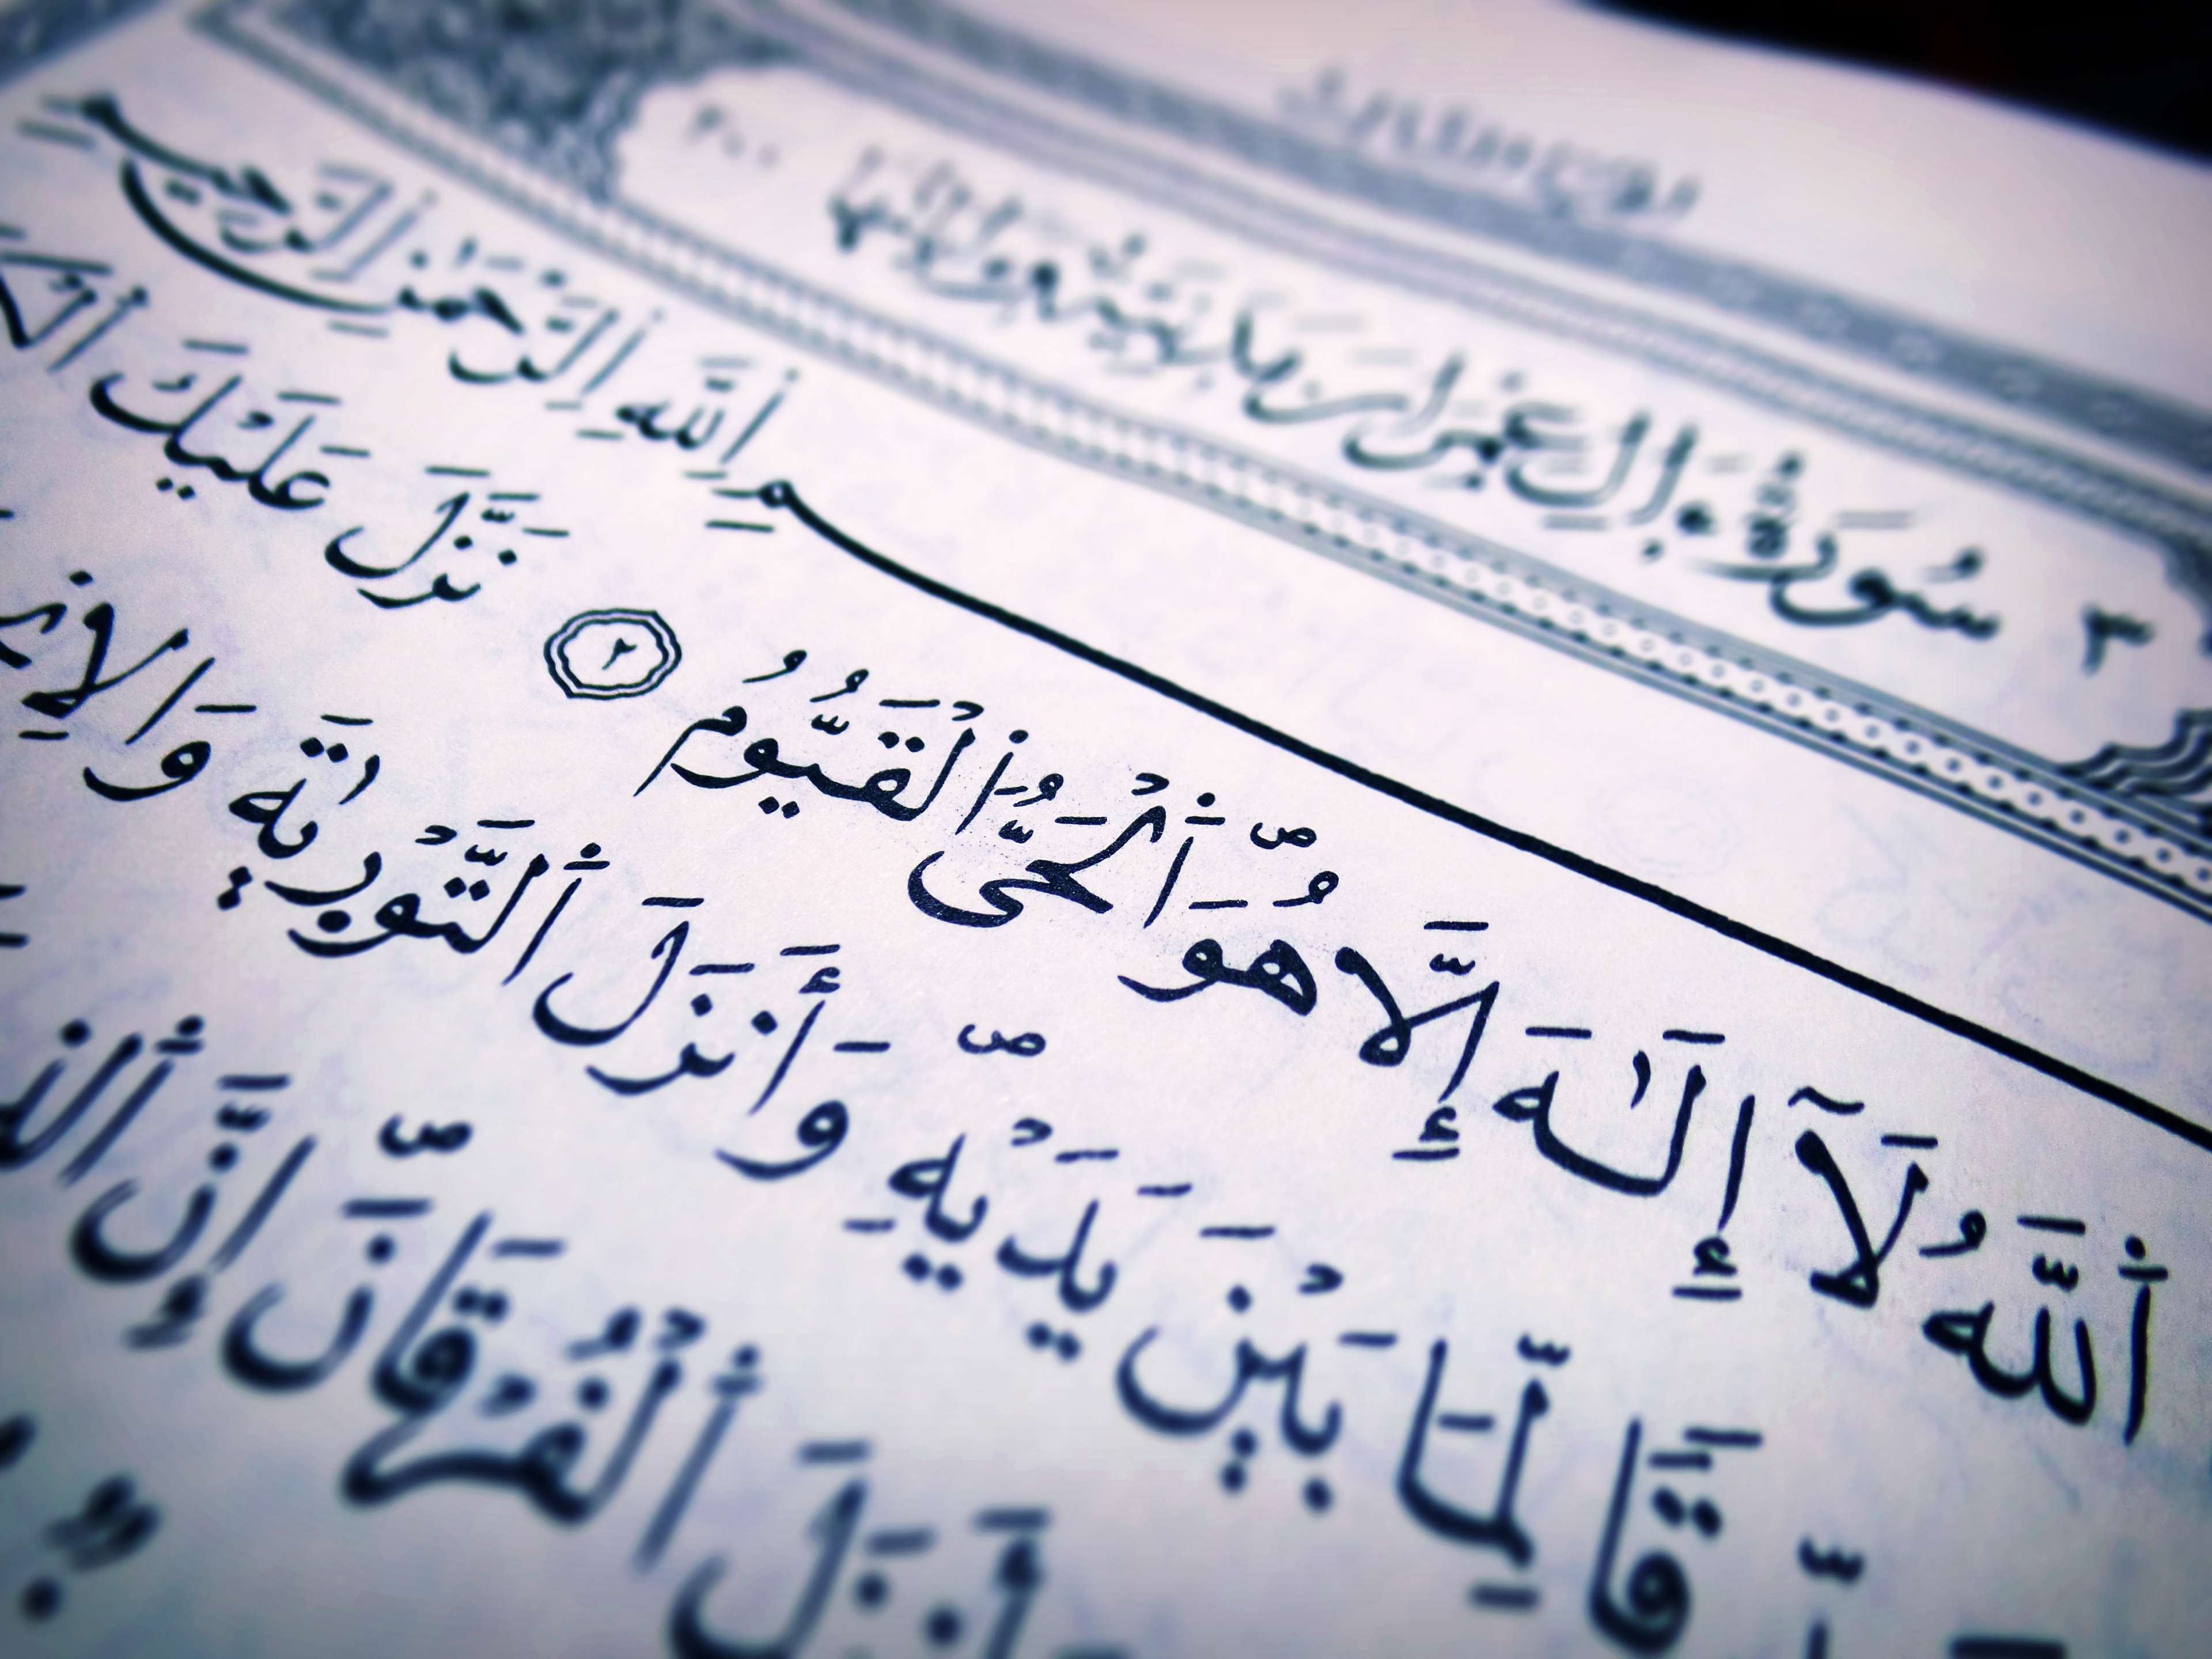 ٣ سُورَةُ آلِ عِمْرَانَ مَدَنِيَّةٌ وَآيَاتُهَا ٢٠٠
سْمِ ٱللَّهِ ٱلرَّحْمَٰنِ ٱلرَّحِيمِ
ٱللَّهُ لَآ إِلَٰهَ إِلَّا هُوَ ۖ ٱلْحَىُّ ٱلْقَيُّومُ ٢ نَزَّلَ عَلَيْكَ
قًا لِّمَا بَيْنَ يَدَيْهِ ۖ وَأَنزَلَ ٱلتَّوْرَىٰةَ
أَنزَلَ ٱلْفُرْقَانَ ۖ إِنَّ